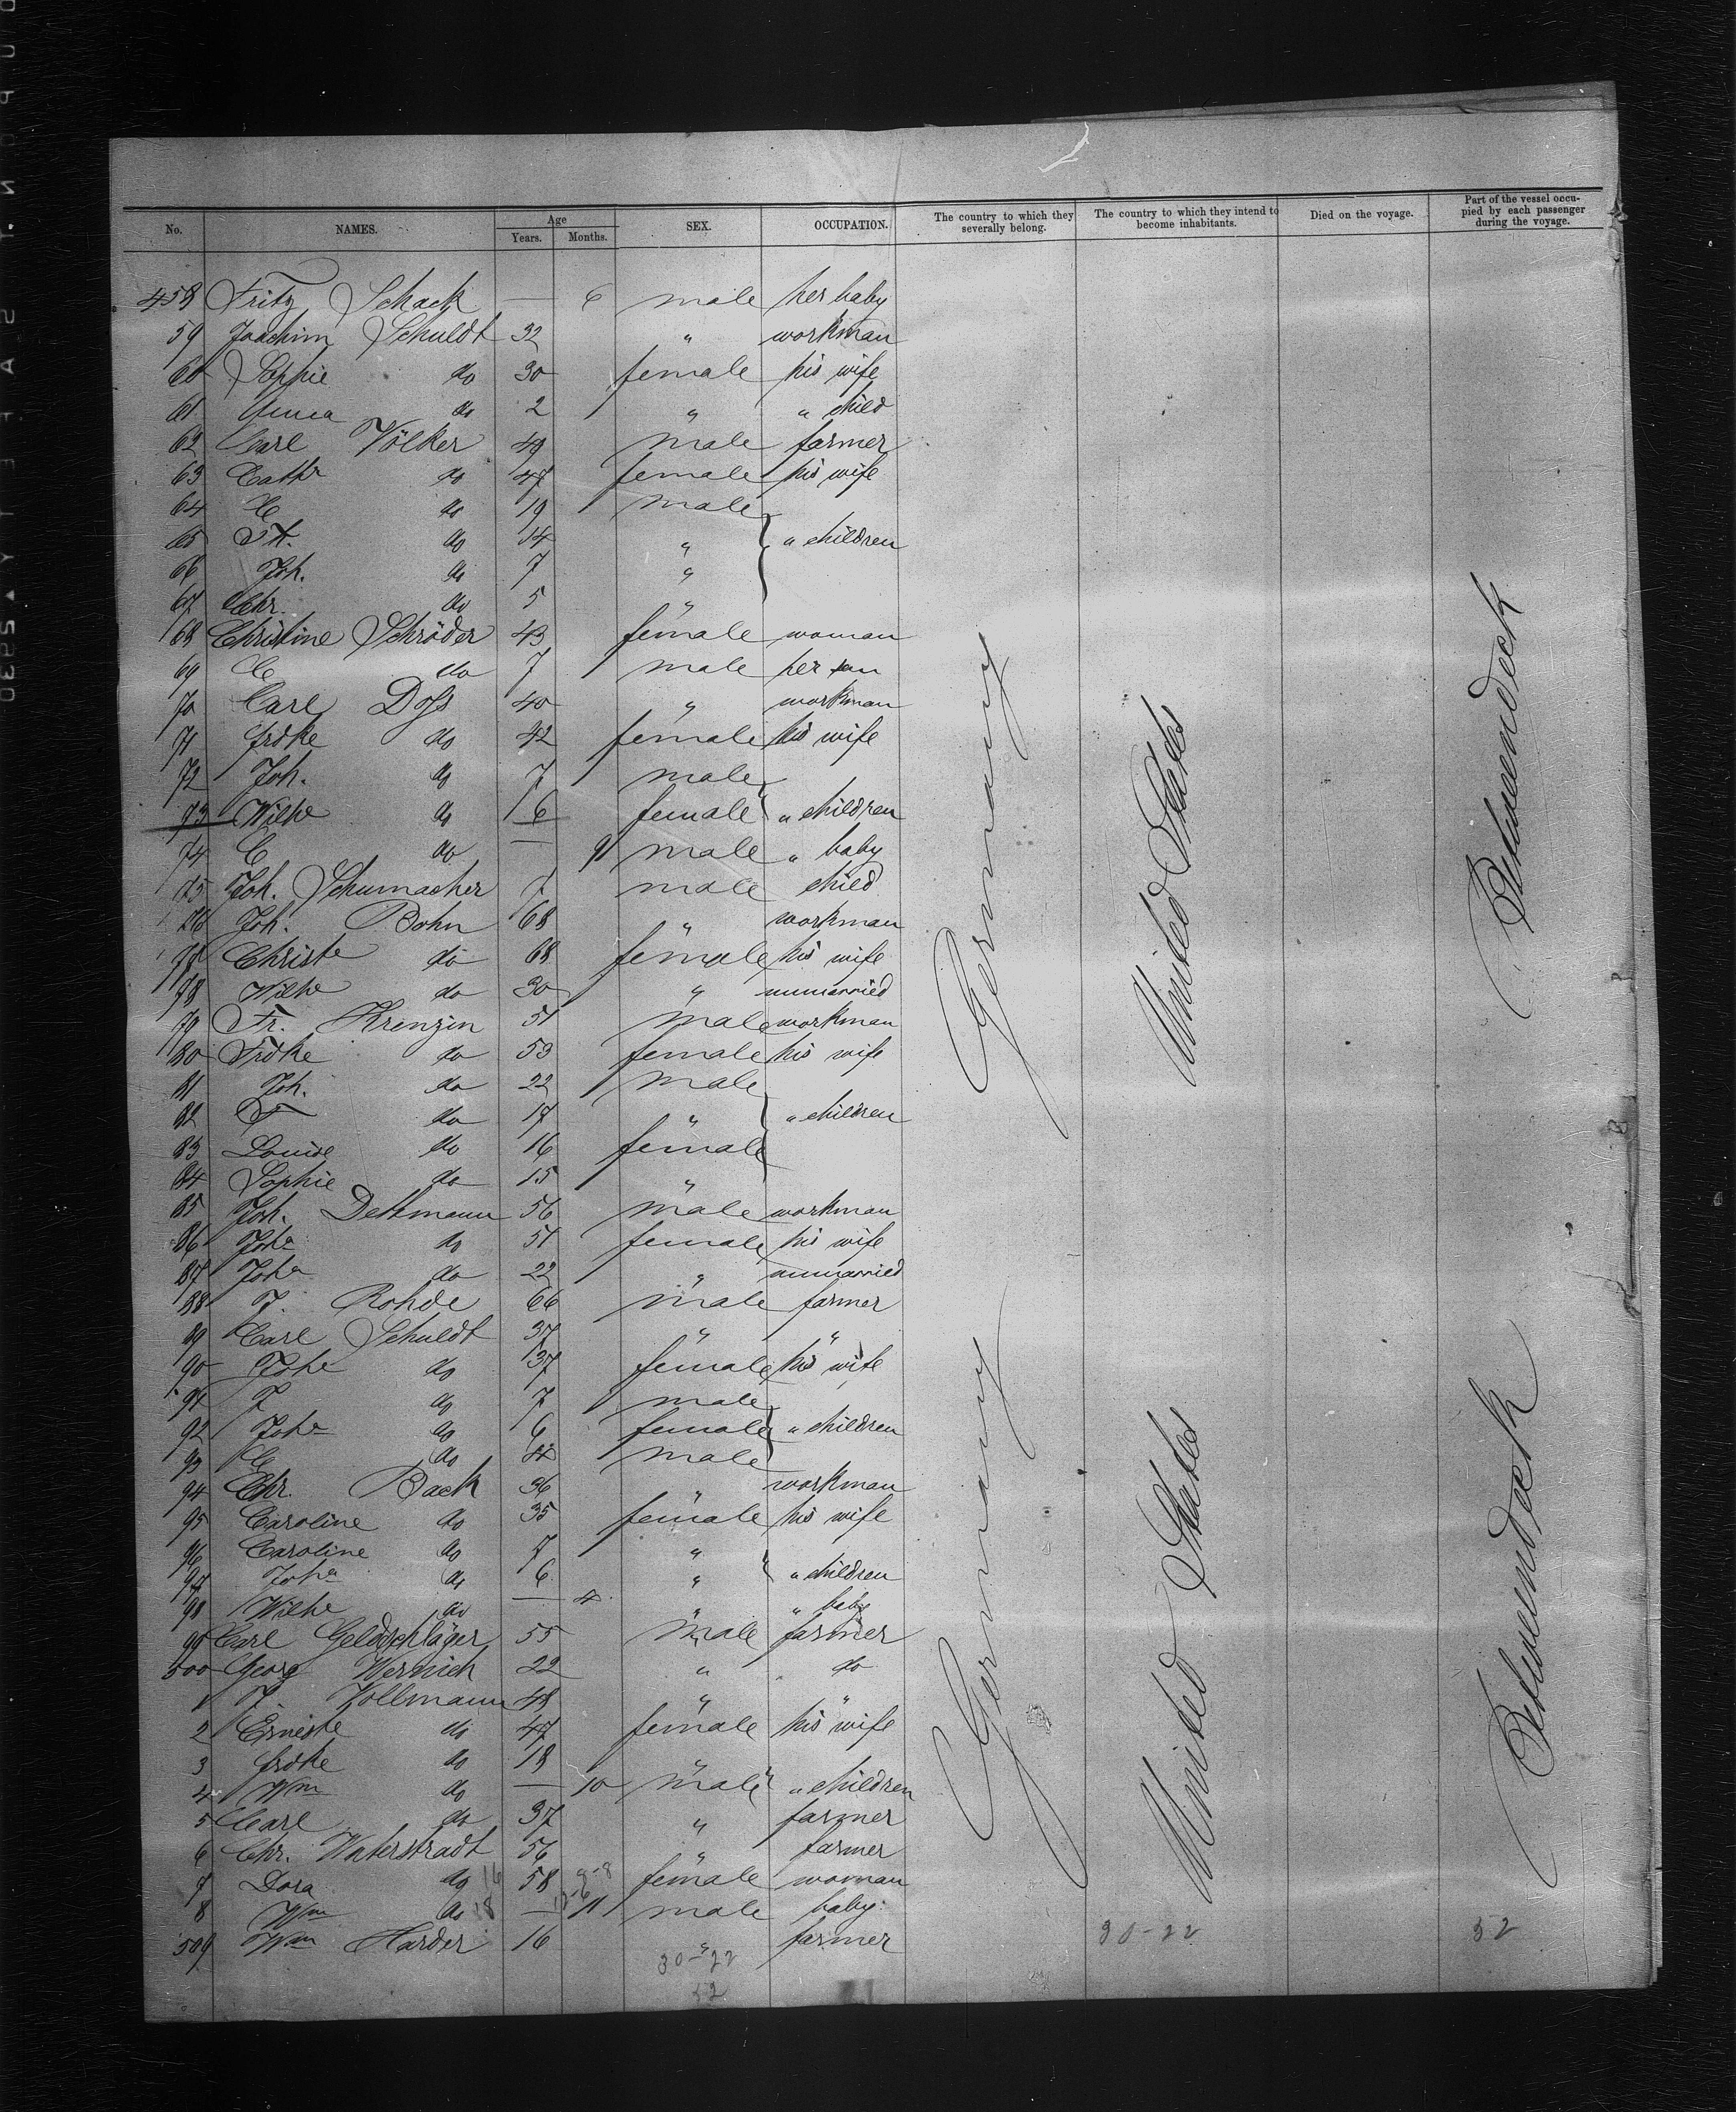 No. NAMES. Age Years. Months. SEX. OCCUPATION. The country to which they severally belong. The country to which they intend to become inhabitants. Died on the voyage. Part of the vessel occupied by each passenger during the voyage.
458 Fritz Schack — 6 male her baby
59 Joachim Schuldt 32 " workman
60 Sophie do 30 female his wife
61 Anna do 2 " " child
62 Carl Völker 49 male farmer
63 Cathe do 47 female his wife
64 C do 19 male
65 Fr. do 14 " " children
66 Joh. do 7 "
67 Chr. do 5 "
68 Christine Schröder 43 female woman
69 C do 7 male her son
70 Carl Doss 40 " workman
71 Frdke do 42 female his wife
72 Joh. do 7 male
73 Wilhe do 6 female " children
74 C do — 9 male " baby
75 Joh. Schumacher 7 male child
76 Joh. Bohn 68 " workman
77 Christe do 68 female his wife
78 Wilhe do 30 " unmarried
79 Fr. Krenzin 51 male workman
80 Frdke do 53 female his wife
81 Joh. do 22 male
82 F do 17 " " children
83 Louise do 16 female
84 Sophie do 15 "
85 Joh. Dettmann 56 male workman
86 Joha do 51 female his wife
87 Joha do 22 " unmarried
88 J. Rohde 66 male farmer
89 Carl Schuldt 37 " "
90 Johe do 37 female his wife
91 J do 7 male
92 Joha do 6 female " children
93 C do 4 male
94 Chr. Back 36 " workman
95 Caroline do 35 female his wife
96 Caroline do 7 "
97 Joha do 6 " " children
98 Wilhe do — 4 " " baby
99 Carl Geldschläger 55 male farmer
500 Georg Wernich 22 " do
1 J. Zollmann 48 " "
2 Erniste do 47 female his wife
3 Frdke do 18 "
4 Wm do — 10 male " children
5 Carl do 37 " farmer
6 Chr. Waterstradt 56 " farmer
7 Dora do 58 female woman
8 Wm do — 11 male baby
509 Wm Harder 16 " farmer
Germany
United States
Betweendeck
Germany
United States
Betweendeck
30-22
52
30-22
52